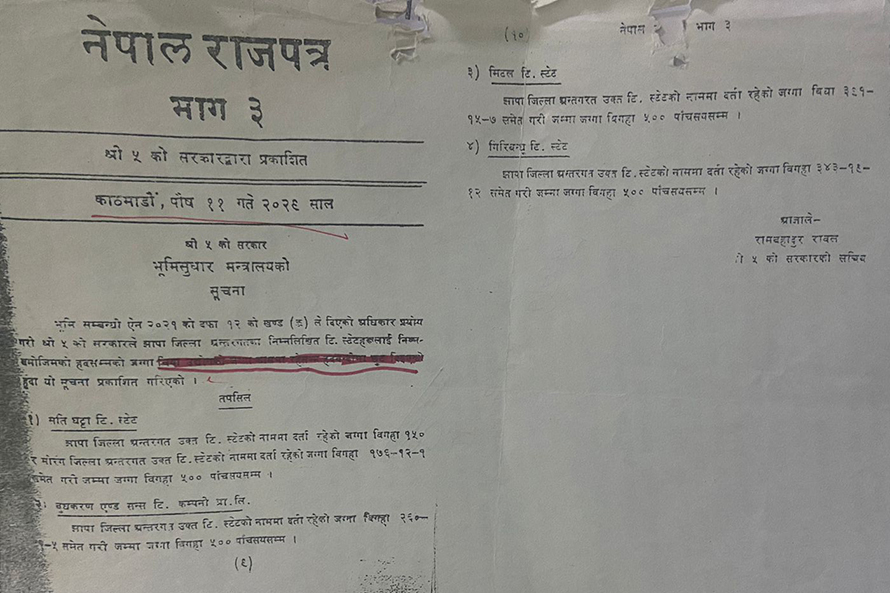 नेपाल राजपत्र
भाग ३
श्री ५ को सरकारद्वारा प्रकाशित
काठमाडौं, पौष ११ गते २०२९ साल
श्री ५ को सरकार
भूमिसुधार मन्त्रालयको
सूचना
भूमि सम्बन्धी ऐन २०२१ को दफा १२ को खण्ड (ङ) ले दिएको अधिकार प्रयोग
गरी श्री ५ को सरकारले झापा जिल्ला अन्तरगतका निम्नलिखित टि. स्टेटहरूलाई निम्न-
बमोजिमको हदसम्मको जग्गा
हुंदा यो सूचना प्रकाशित गरिएको ।
तपसिल
१) मति घट्टा टि. स्टेट
झापा जिल्ला अन्तरगत उक्त टि. स्टेटको नाममा दर्ता रहेको जग्गा विगहा १५०
र मोरंग जिल्ला अन्तरगत उक्त टि. स्टेटको नाममा दर्ता रहेको जग्गा विगहा १७६-१२-१
समेत गरी जम्मा जग्गा विगहा ५०० पांचसयसम्म ।
२) बुधकरण एण्ड सन्स टि. कम्पनी प्रा.लि.
झापा जिल्ला अन्तरगत उक्त टि. स्टेटको नाममा दर्ता रहेको जग्गा विगहा २६०-
१-५ समेत गरी जम्मा जग्गा विगहा ५०० पांचसयसम्म ।
(९)
(१०)
नेपाल भाग ३
३) मितल टि. स्टेट
झापा जिल्ला अन्तरगत उक्त टि. स्टेटको नाममा दर्ता रहेको जग्गा विघा ३६१-
१५-७ समेत गरी जम्मा जग्गा विगहा ५०० पांचसयसम्म ।
४) गिरिबन्धु टि. स्टेट
झापा जिल्ला अन्तरगत उक्त टि. स्टेटको नाममा दर्ता रहेको जग्गा विगहा ३४३-१९-
१२ समेत गरी जम्मा जग्गा विगहा ५०० पांचसयसम्म ।
आज्ञाले-
रामबहादुर रावल
५ को सरकारको सचिव